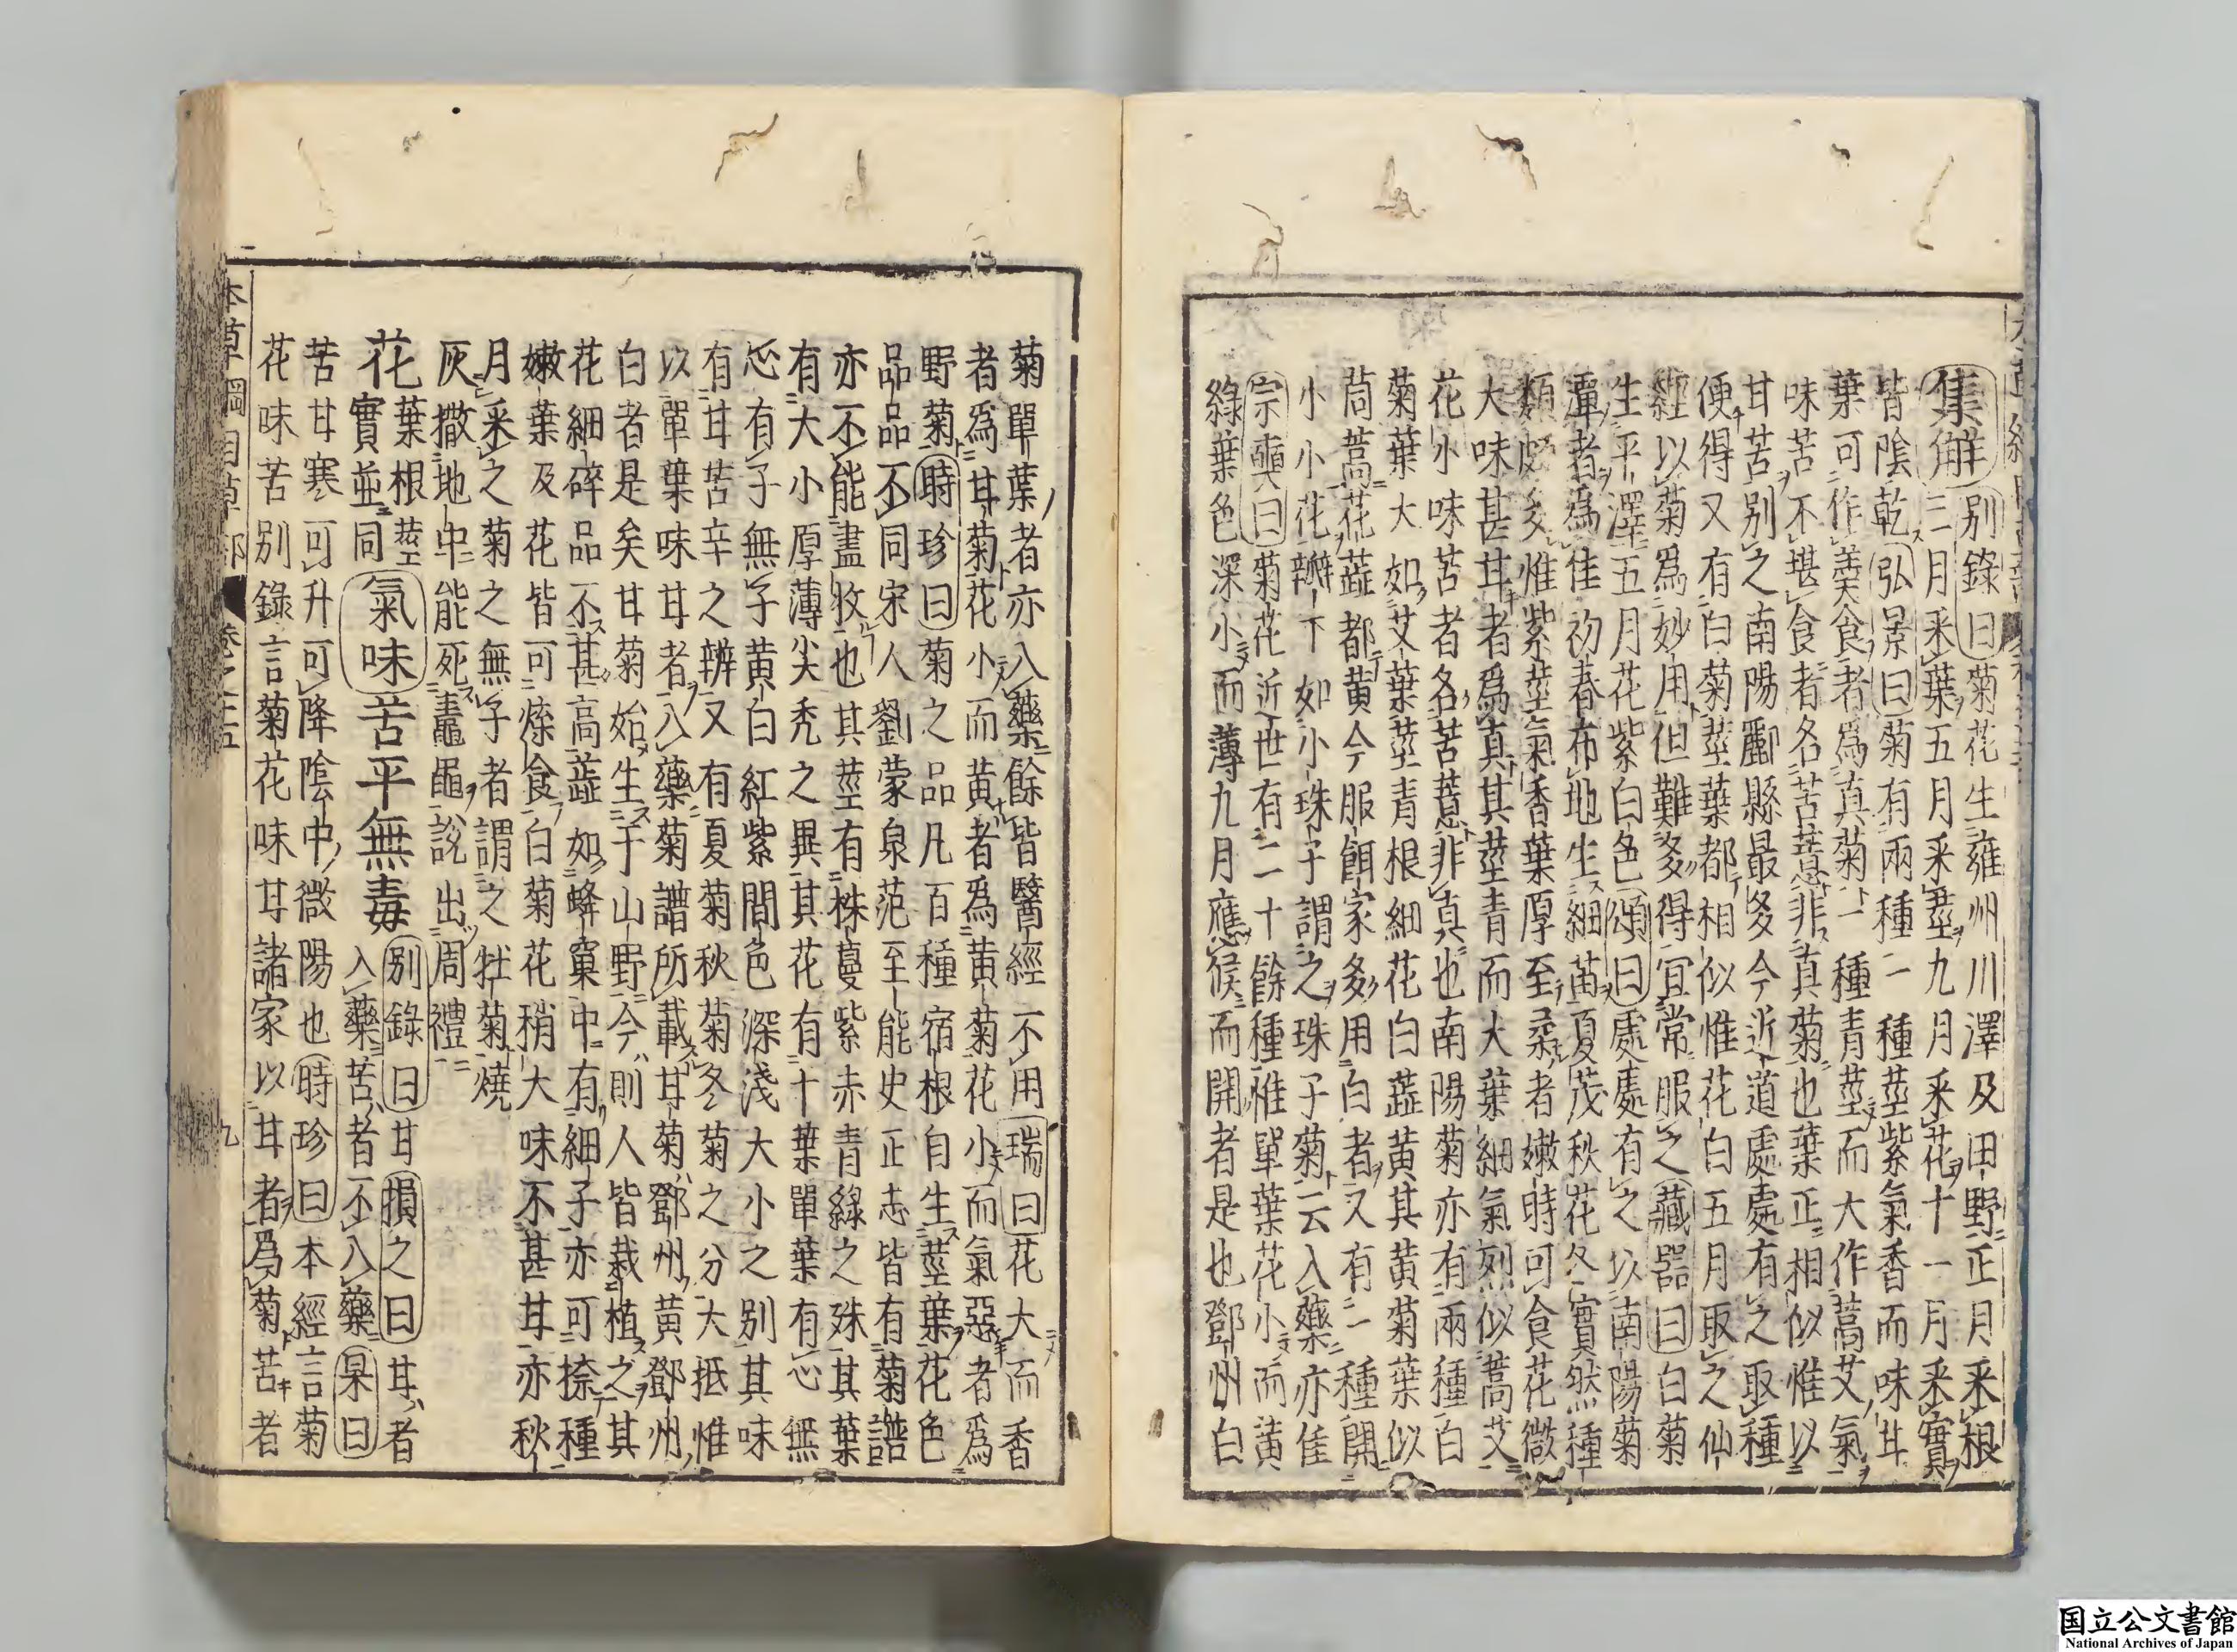 集解別錄曰菊花生雍州川澤及田野正月采根
三月采葉五月采莖九月采花十一月采實
皆陰乾弘景曰菊有兩種一種莖紫氣香而味甘
葉可作羹食者爲真菊一種青莖而大作蒿艾氣
味苦不堪食者名苦薏非真菊也葉正相似惟以
甘苦別之南陽酈縣最多今近道處處有之取種
便得又有白菊莖葉都相似惟花白五月取之仙
經以菊爲妙用但難多得宜常服之藏器曰白菊
生平澤五月花紫白色頌曰處處有之以南陽菊
潭者爲佳初春布地生細苗夏茂秋花冬實然種
類頗多惟紫莖氣香葉厚至柔者嫩時可食花微
大味甚甘者爲真其莖青而大葉細氣烈似蒿艾
花小味苦者名苦薏非真也南陽菊亦有兩種白
菊葉大如艾葉莖青根細花白蘂黃其黃菊葉似
茼蒿花蘂都黃今服餌家多用白者又有一種開
小小花瓣下如小珠子謂之珠子菊云入藥亦佳
宗奭曰菊花近世有二十餘種惟單葉花小而黃
綠葉色深小而薄九月應候而開者是也鄧州白
菊單葉者亦入藥餘皆醫經不用瑞曰花大而香
者爲甘菊花小而黃者爲黃菊花小而氣惡者爲
野菊時珍曰菊之品凡百種宿根自生莖葉花色
品品不同宋人劉蒙泉范至能史正志皆有菊譜
亦不能盡收也其莖有株蔓紫赤青綠之殊其葉
有大小厚薄尖禿之異其花有十葉單葉有心無
心有子無子黃白紅紫間色深淺大小之別其味
有甘苦辛之辨又有夏菊秋菊冬菊之分大抵惟
以單葉味甘者入藥菊譜所載甘菊鄧州黃鄧州
白者是矣甘菊始生于山野今則人皆栽植之其
花細碎品不甚高蘂如蜂窠中有細子亦可捺種
嫩葉及花皆可煠食白菊花稍大味不甚甘亦秋
月采之菊之無子者謂之牡菊燒
灰撒地中能死鼃黽說出周禮
花葉根莖實並同氣味苦平無毒別錄曰甘損之曰甘者
入藥苦者不入藥杲曰
苦甘寒可升可降陰中微陽也時珍曰本經言菊
花味苦別錄言菊花味甘諸家以甘者爲菊苦者
本草綱目草部 卷之十五 九
国立公文書館
National Archives of Japan